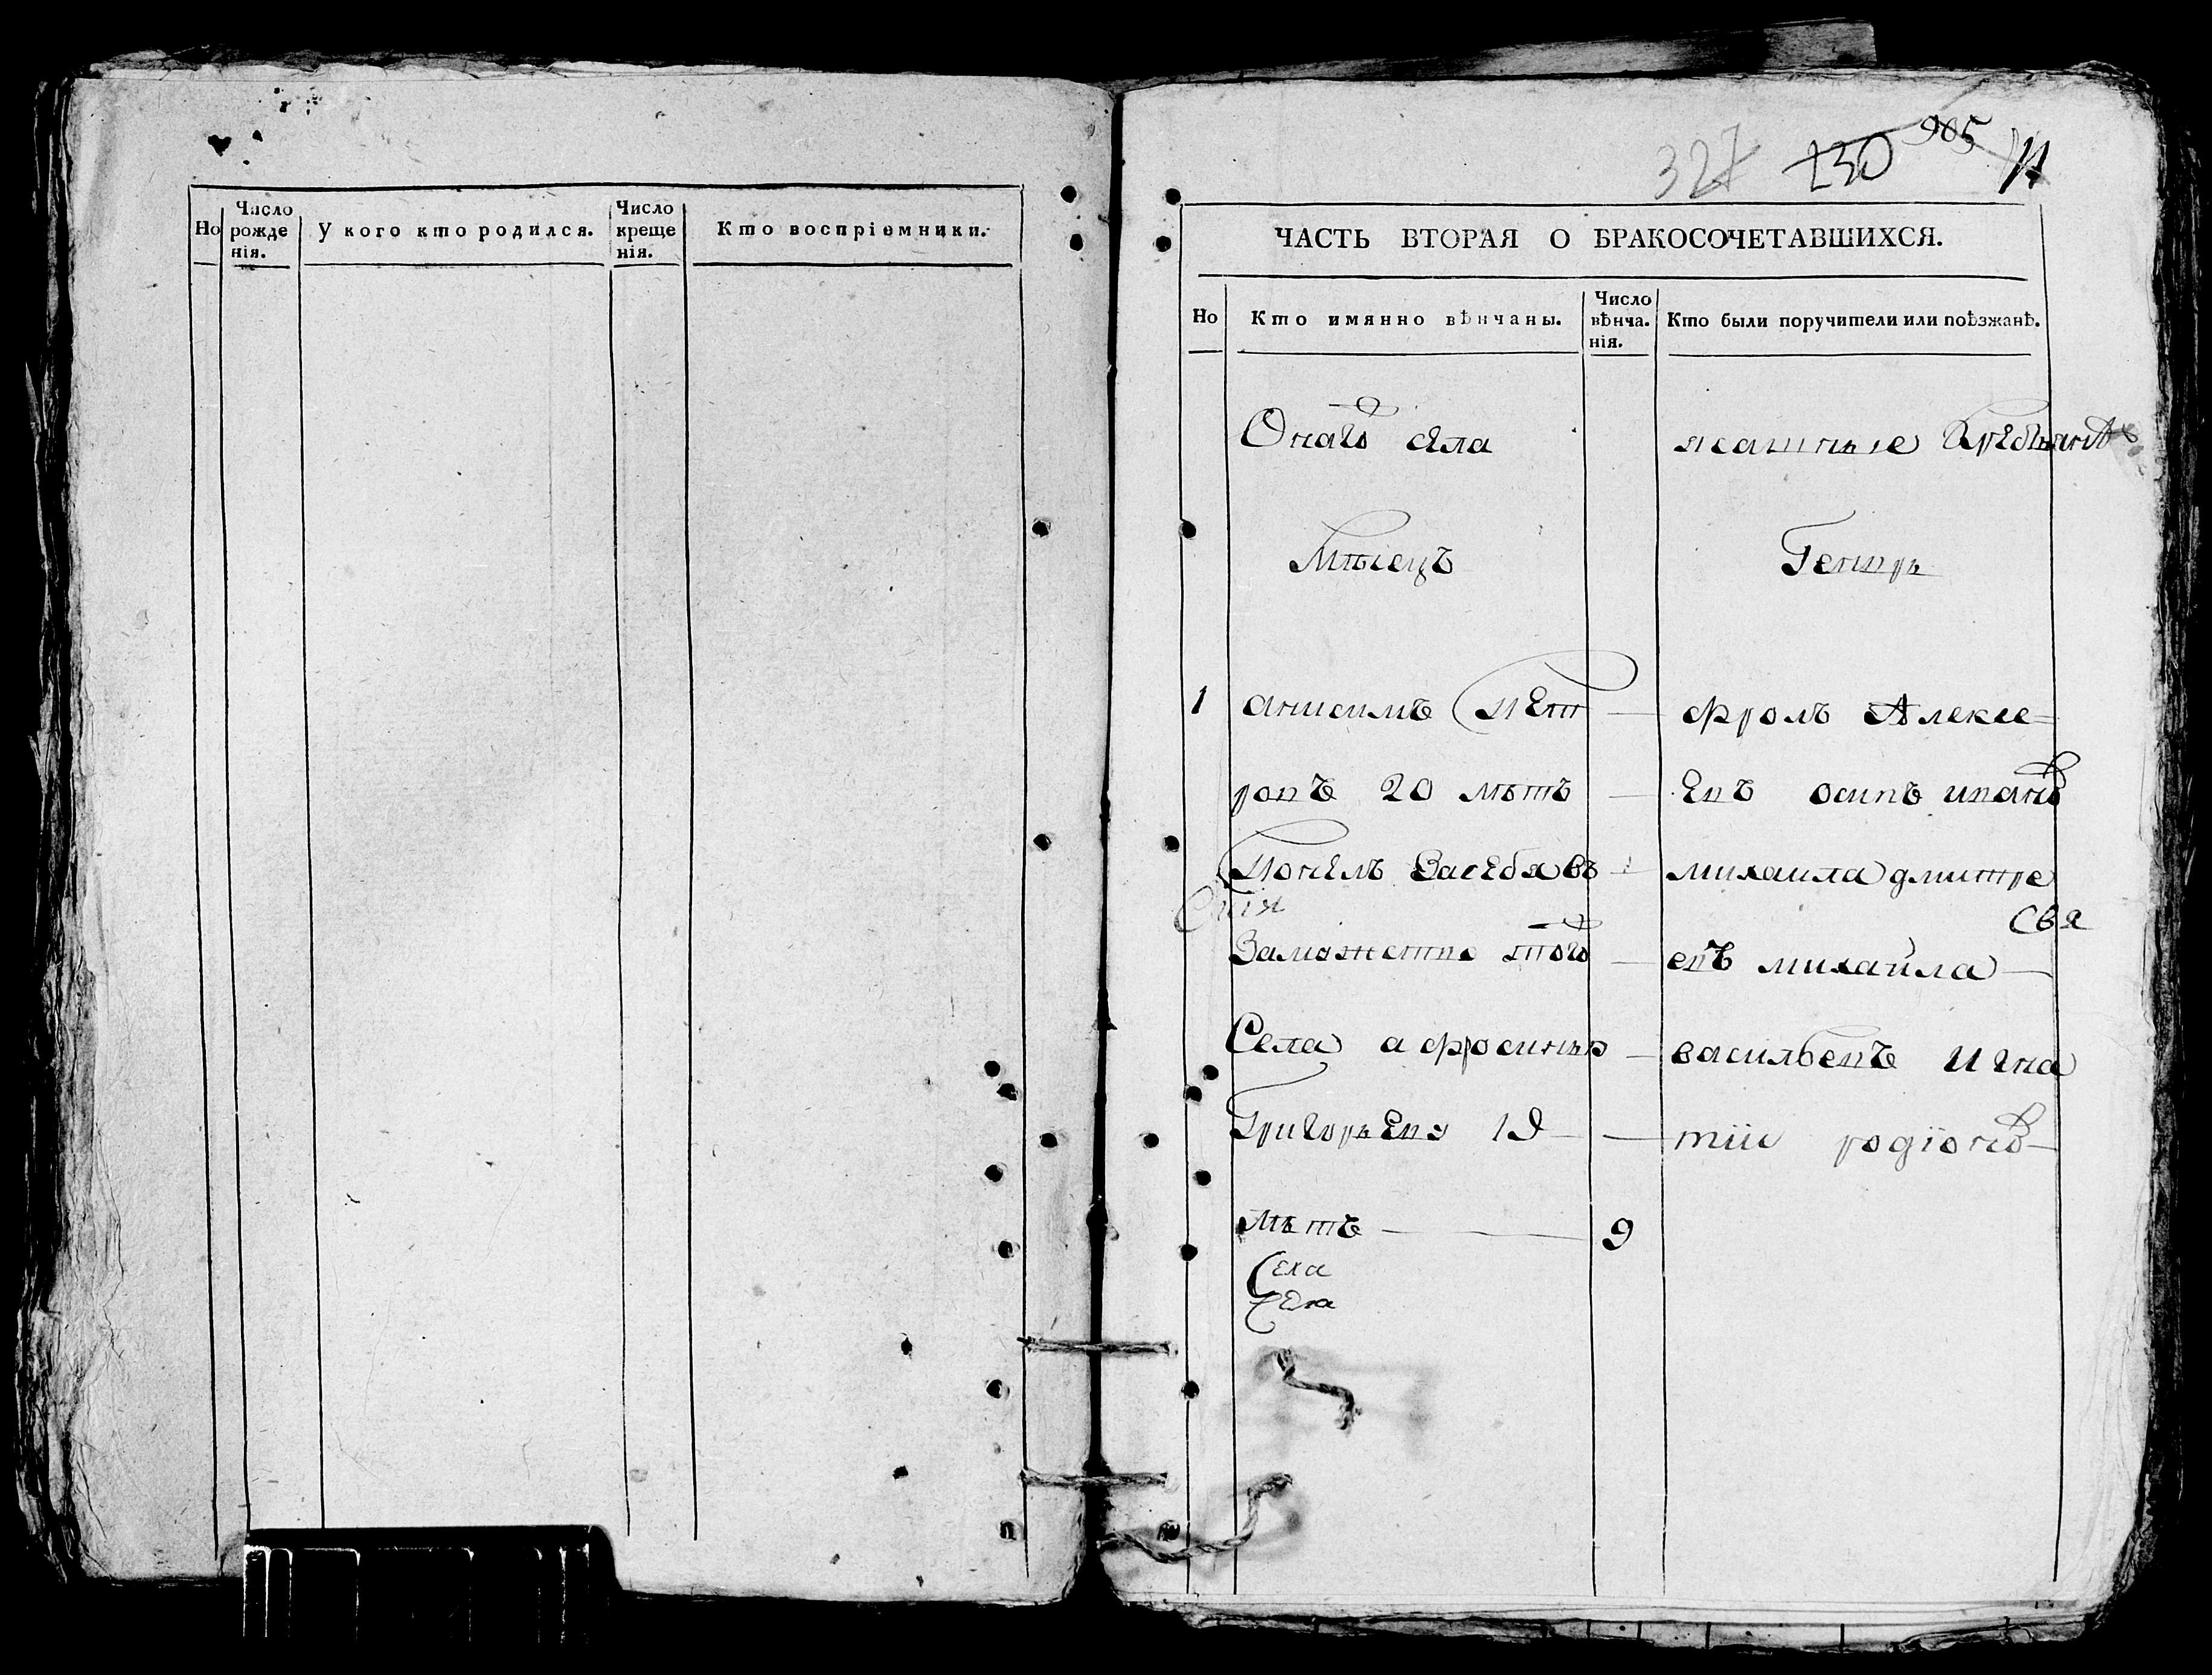 Но
Число рожденія.
У кого кто родился.
Число крещенія.
Кто воспріемники.
327 230 905
ЧАСТЬ ВТОРАЯ О БРАКОСОЧЕТАВШИХСЯ.
Но
Кто имянно вѣнчаны.
Число вѣнча.нія.
Кто были поручители или поѣзжанѣ.
Онаго села
ясашные
Мѣсецъ
Генварь
1 анисимъ пет
ровъ 20 лѣтъ
понелъ засебя въ
замужетво того
Села афросинью
Григорьеву 19
лѣтъ
9
фролъ Алексе
евъ осипъ иванов
михаила дмитре
свя
евъ михаила
васильевъ игна
тіи родіонов
Села
Села